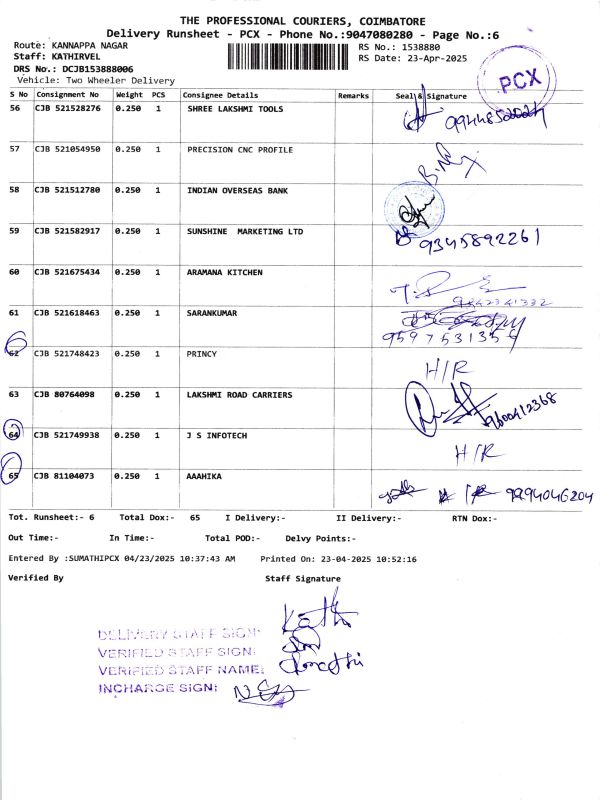 THE PROFESSIONAL COURIERS, COIMBATORE
Delivery Runsheet - PCX - Phone No.:9047080280 - Page No.:6
Route: KANNAPPA NAGAR
RS No.: 1538880
Staff: KATHIRVEL
RS Date: 23-Apr-2025
DRS No.: DCJB153888006
Vehicle: Two Wheeler Delivery
PCX
S No Consignment No Weight PCS Consignee Details Remarks Seal & Signature
56 CJB 521528276 0.250 1 SHREE LAKSHMI TOOLS
57 CJB 521054950 0.250 1 PRECISION CNC PROFILE
58 CJB 521512780 0.250 1 INDIAN OVERSEAS BANK
59 CJB 521582917 0.250 1 SUNSHINE MARKETING LTD 9345892261
60 CJB 521675434 0.250 1 ARAMANA KITCHEN 9842341332
61 CJB 521618463 0.250 1 SARANKUMAR 9597531354
62 CJB 521748423 0.250 1 PRINCY H/R
63 CJB 80764098 0.250 1 LAKSHMI ROAD CARRIERS 9600412368
64 CJB 521749938 0.250 1 J S INFOTECH H/R
65 CJB 81104073 0.250 1 AAAHIKA 9994046204
Tot. Runsheet:- 6 Total Dox:- 65 I Delivery:- II Delivery:- RTN Dox:-
Out Time:- In Time:- Total POD:- Delvy Points:-
Entered By :SUMATHIPCX 04/23/2025 10:37:43 AM Printed On: 23-04-2025 10:52:16
Verified By Staff Signature
DELIVERY STAFF SIGN:
VERIFIED STAFF SIGN:
VERIFIED STAFF NAME:
INCHARGE SIGN: